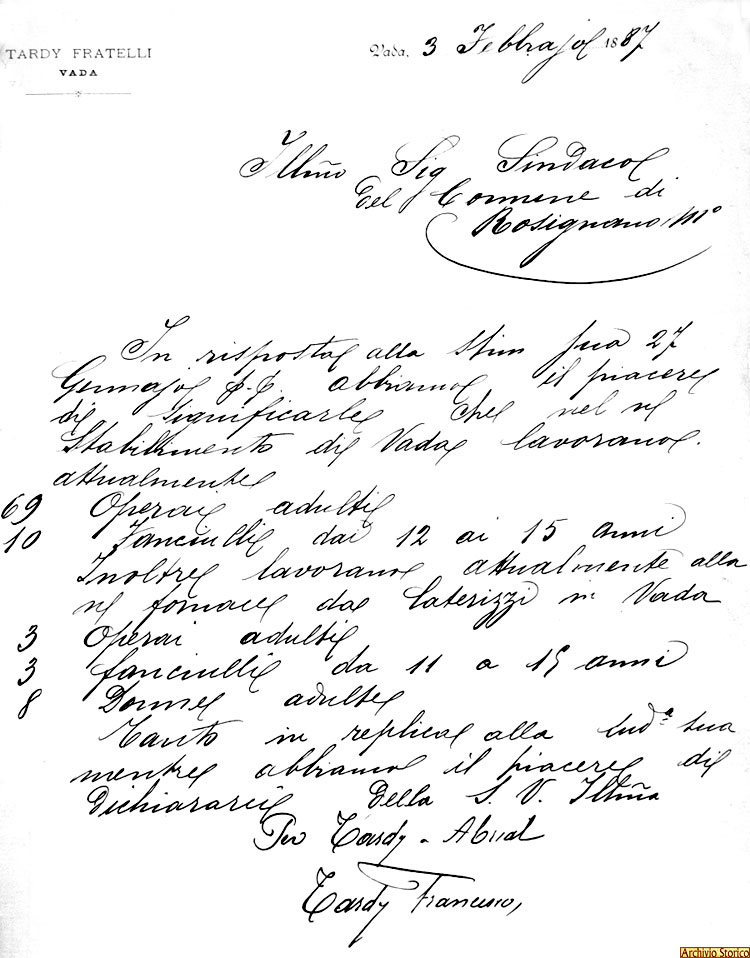 TARDY FRATELLI
VADA
Vada, 3 Febbrajo 1887
Illmo Sig Sindaco
Del Comune di
Rosignano Mo
In risposta alla Stim sua 27
Gennajo abbiamo il piacere
di significarle che nel ns
Stabilimento di Vada lavorano
attualmente
69 Operai adulti
10 Fanciulli dai 12 ai 15 anni
Inoltre lavorano attualmente alla
ns fornace da laterizzi in Vada
3 Operai adulti
3 fanciulli da 11 a 15 anni
8 Donne adulte
Tanto in replica alla sua
mentre abbiamo il piacere di
Dichiararci Della S. V. Illma
Per Tardy - Abual
Tardy Francesco,
Archivio Storico